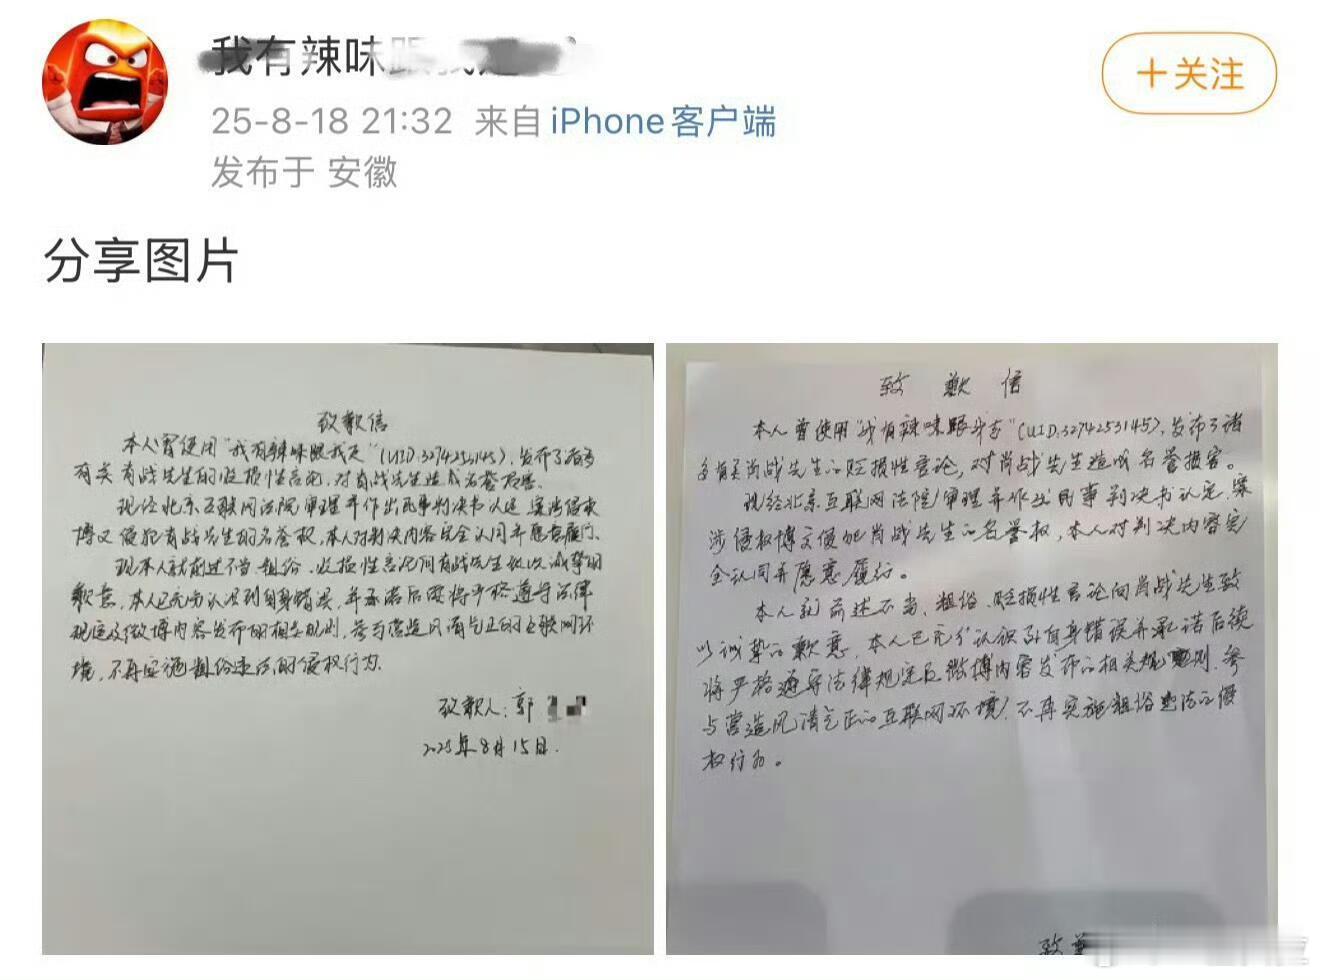 我有辣味跟我走
25-8-18 21:32 来自 iPhone客户端
发布于 安徽
＋关注
分享图片
致歉信
本人曾使用“我有辣味跟我走”(UID:3274253145),发布了诸多
有关肖战先生的贬损性言论,对肖战先生造成名誉损害。
现经北京互联网法院审理并作出民事判决书认定,案涉侵权
博文侵犯肖战先生的名誉权,本人对判决内容完全认同并愿意履行。
现本人就前述不当、粗俗、贬损性言论向肖战先生致以诚挚的
歉意,本人已充分认识到自身错误,并承诺后续将严格遵守法律
规定及微博内容发布的相关规则,参与营造风清气正的互联网环
境,不再实施粗俗违法的侵权行为.
致歉人:郭
2025年8月15日.
致歉信
本人曾使用“我有辣味跟我走”(UID:3274253145),发布了诸
多有关肖战先生的贬损性言论,对肖战先生造成名誉损害。
现经北京互联网法院审理并作出民事判决书认定,案
涉侵权博文侵犯肖战先生的名誉权,本人对判决内容完
全认同并愿意履行。
本人就前述不当、粗俗、贬损性言论向肖战先生致
以诚挚的歉意,本人已充分认识到自身错误并承诺后续
将严格遵守法律规定及微博内容发布的相关规则,参
与营造风清气正的互联网环境,不再实施粗俗违法的侵
权行为。
致